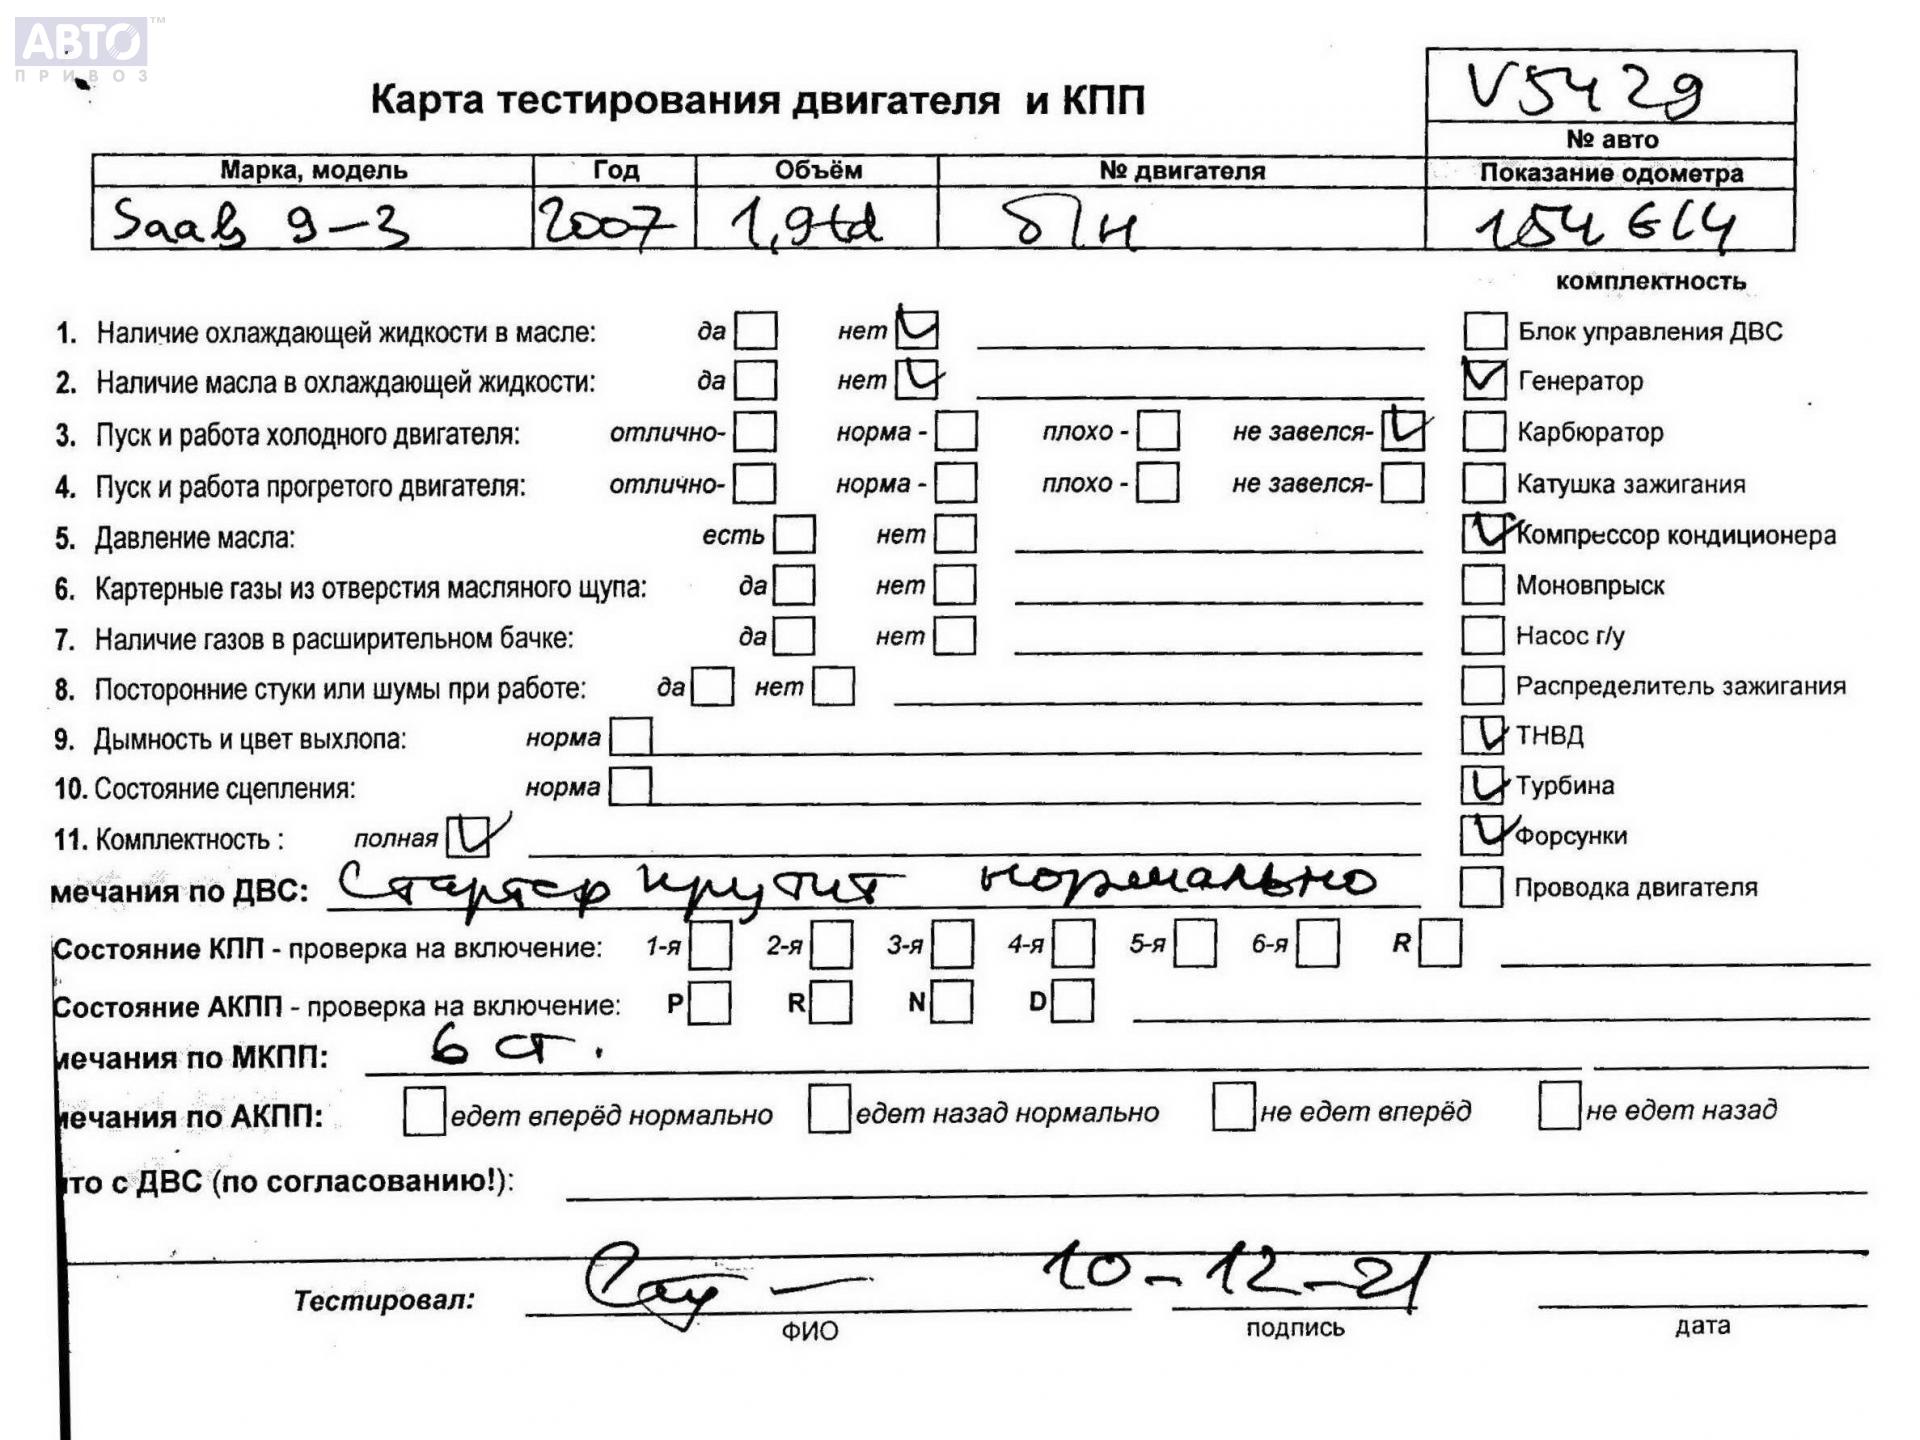 АВТО™
ПРИВОЗ
V5429
Карта тестирования двигателя и КПП
№ авто
Марка, модель Год Объём № двигателя Показание одометра
Saab 9-3 2007 1,9td б/н 154614
комплектность
1. Наличие охлаждающей жидкости в масле: да нет Блок управления ДВС
2. Наличие масла в охлаждающей жидкости: да нет Генератор
3. Пуск и работа холодного двигателя: отлично- норма - плохо - не завелся- Карбюратор
4. Пуск и работа прогретого двигателя: отлично- норма - плохо - не завелся- Катушка зажигания
5. Давление масла: есть нет Компрессор кондиционера
6. Картерные газы из отверстия масляного щупа: да нет Моновпрыск
7. Наличие газов в расширительном бачке: да нет Насос г/у
8. Посторонние стуки или шумы при работе: да нет Распределитель зажигания
9. Дымность и цвет выхлопа: норма ТНВД
10. Состояние сцепления: норма Турбина
11. Комплектность : полная Форсунки
мечания по ДВС: Стартер крутит нормально Проводка двигателя
Состояние КПП - проверка на включение: 1-я 2-я 3-я 4-я 5-я 6-я R
Состояние АКПП - проверка на включение: P R N D
мечания по МКПП: 6 ст.
мечания по АКПП: едет вперёд нормально едет назад нормально не едет вперёд не едет назад
то с ДВС (по согласованию!):
Тестировал: 10-12-21
ФИО подпись дата